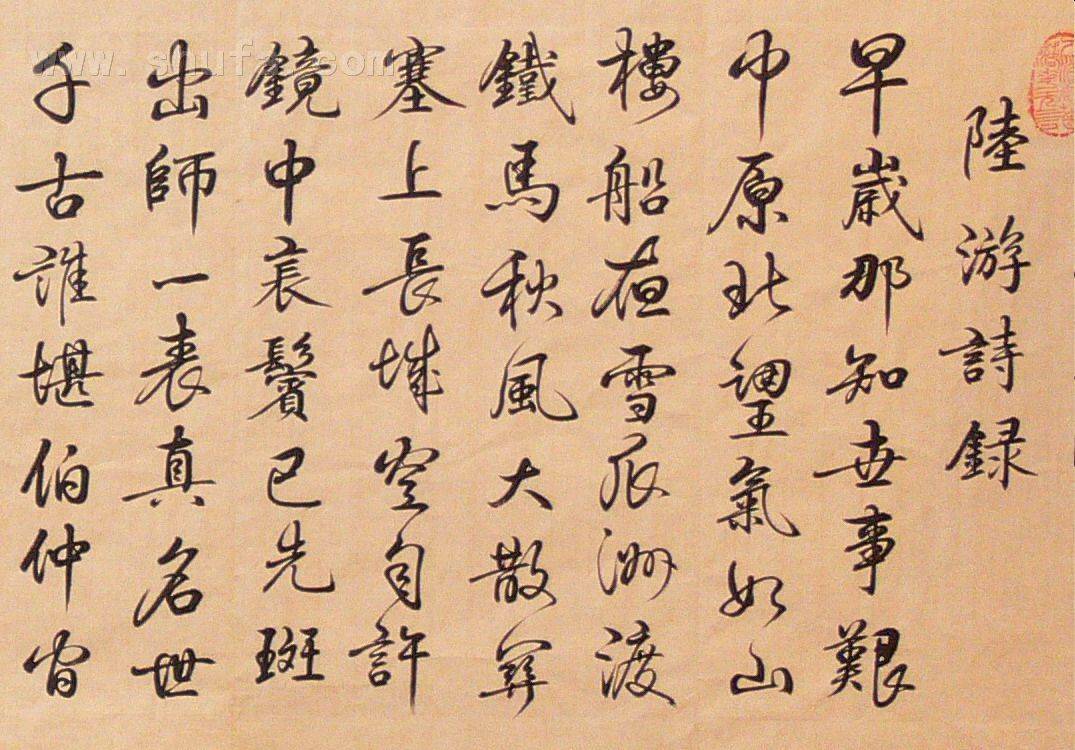 陸游詩録
早歲那知世事艱
中原北望氣如山
樓船夜雪瓜洲渡
鐵馬秋風大散關
塞上長城空自許
鏡中衰鬢已先斑
出師一表真名世
千古誰堪伯仲間